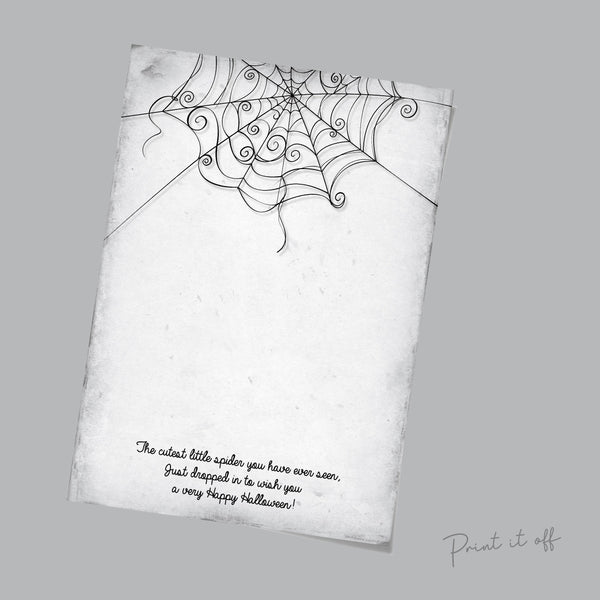 The cutest little spider you have ever seen,
Just dropped in to wish you
a very Happy Halloween!
Print it off